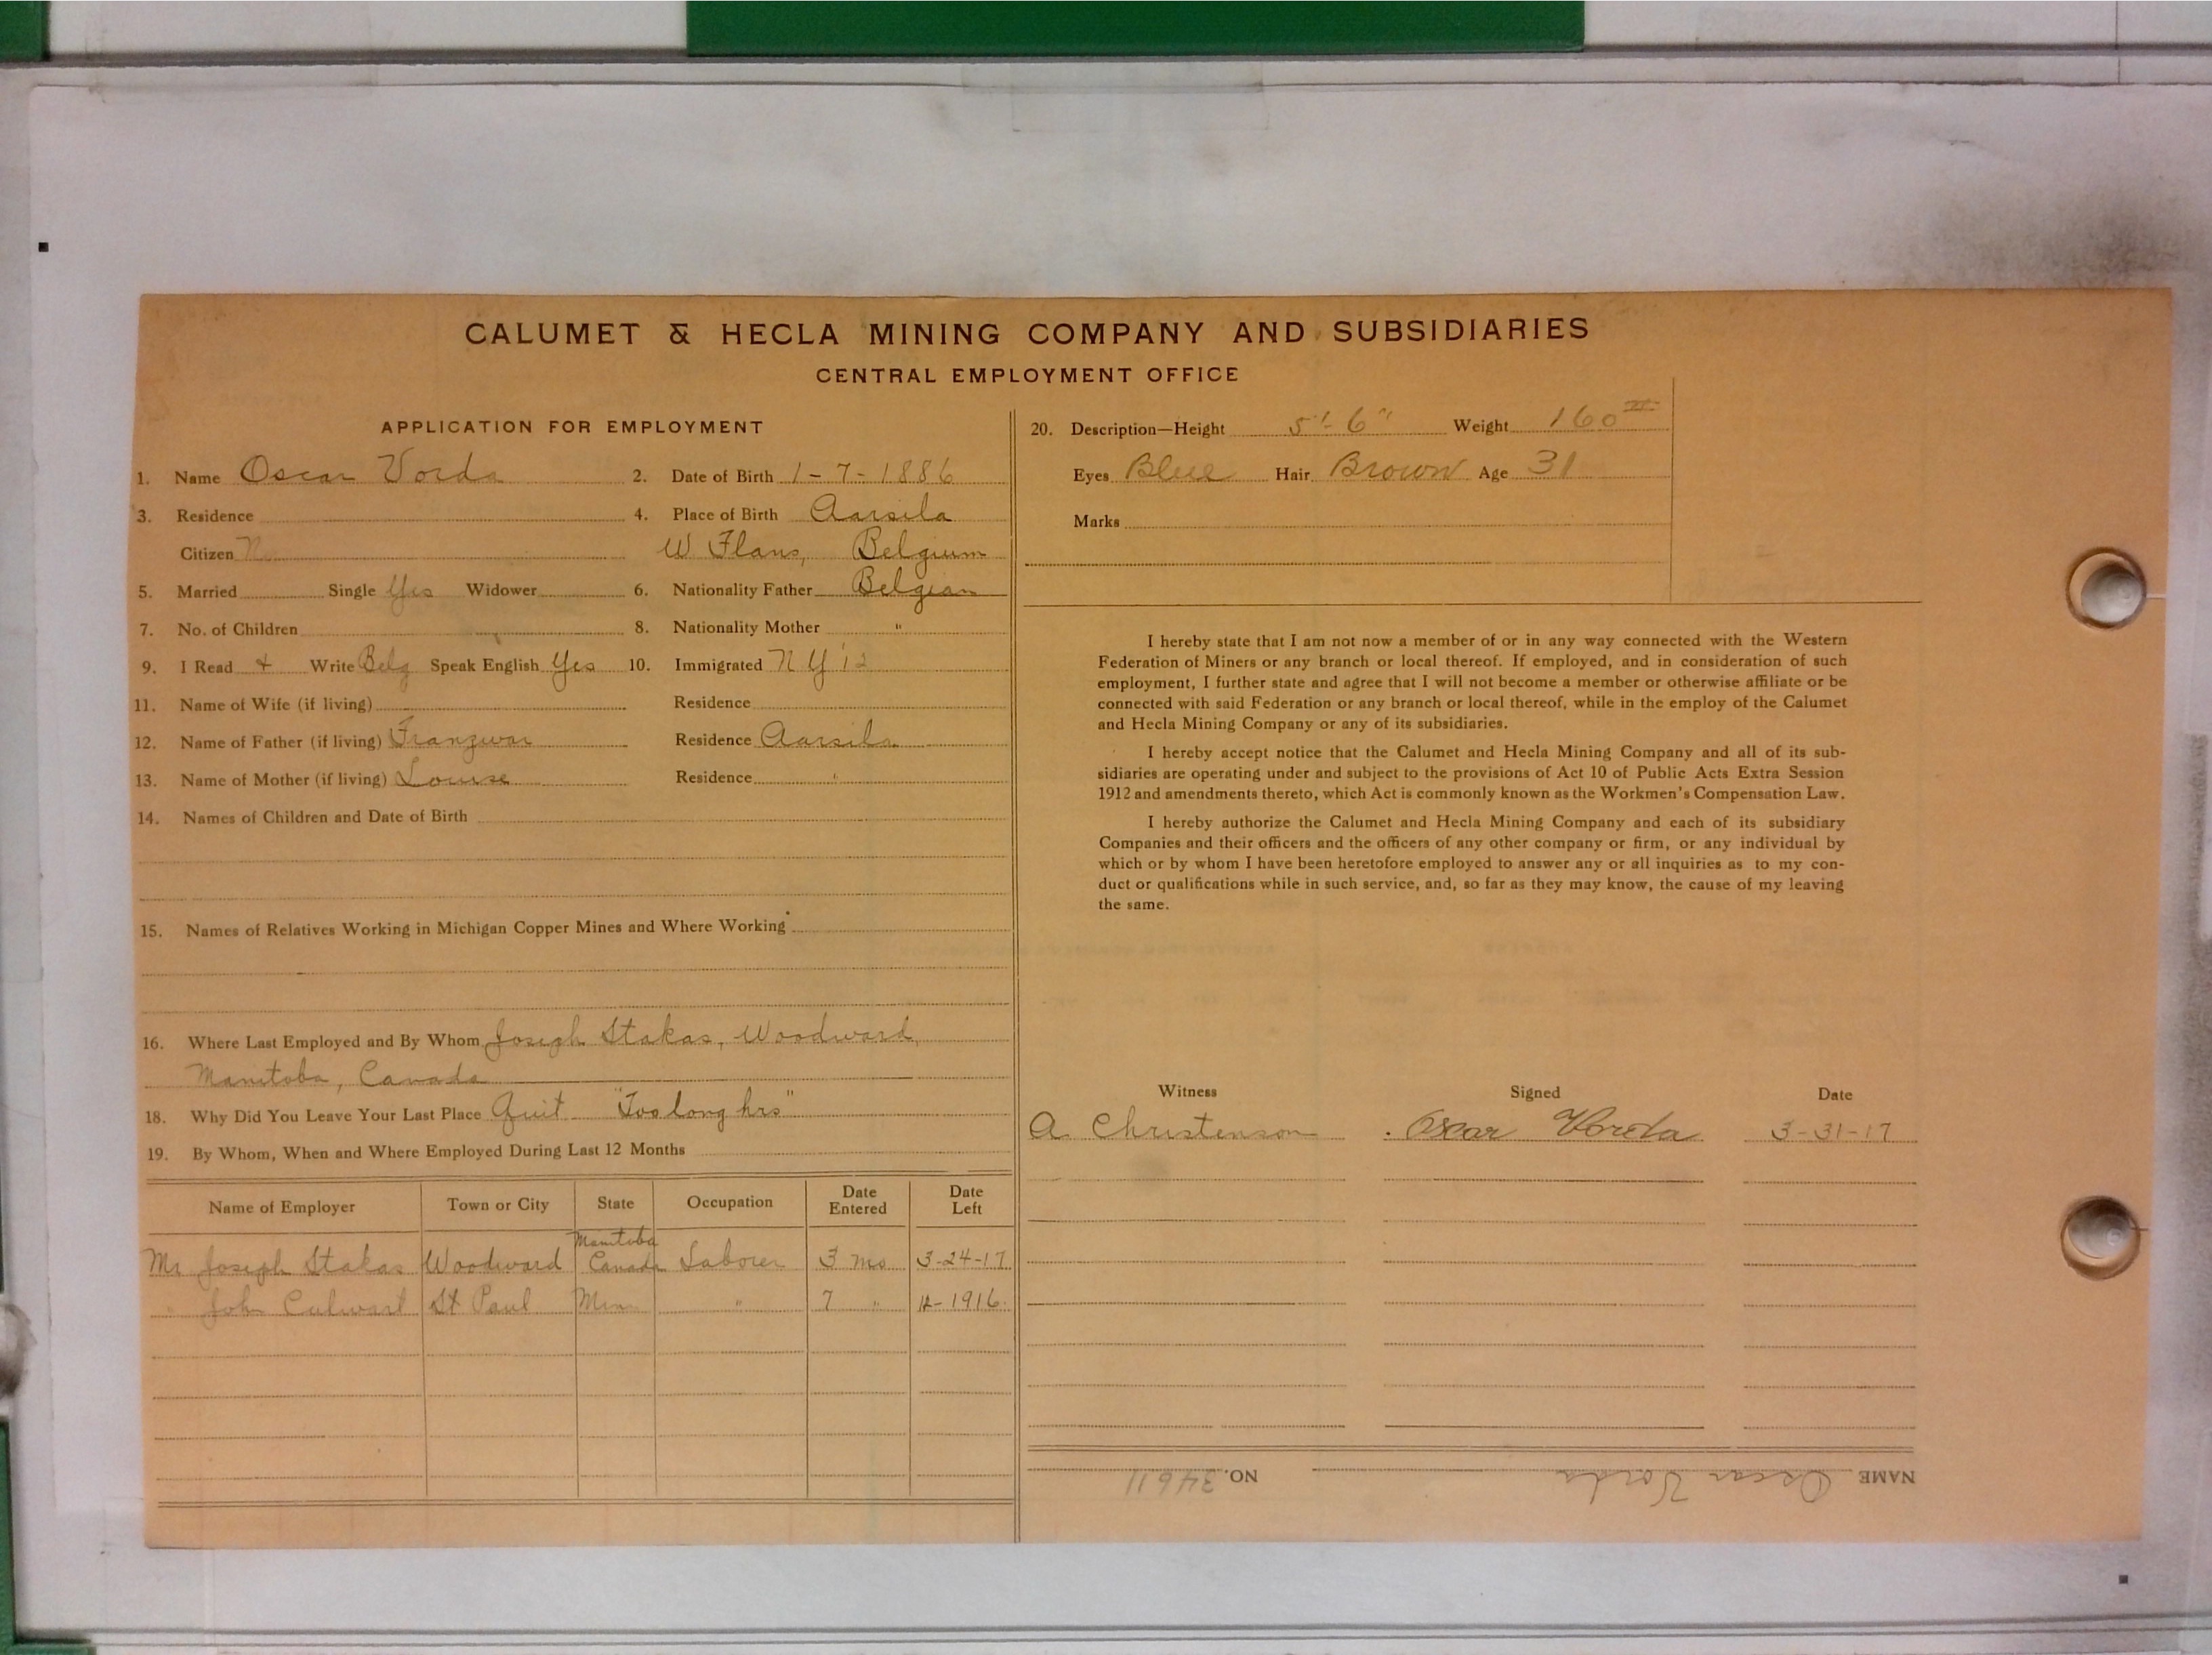 CALUMET & HECLA MINING COMPANY AND SUBSIDIARIES
CENTRAL EMPLOYMENT OFFICE
APPLICATION FOR EMPLOYMENT
1. Name Oscar Vorda 2. Date of Birth 1-7-1886
3. Residence 4. Place of Birth Aarsila
Citizen No W Flans, Belgium
5. Married Single Yes Widower 6. Nationality Father Belgian
7. No. of Children 8. Nationality Mother "
9. I Read & Write Belg Speak English Yes 10. Immigrated N Y '12
11. Name of Wife (if living) Residence
12. Name of Father (if living) Franzwar Residence Aarsila
13. Name of Mother (if living) Louise Residence "
14. Names of Children and Date of Birth
15. Names of Relatives Working in Michigan Copper Mines and Where Working
16. Where Last Employed and By Whom Joseph Stakas, Woodward,
Manitoba, Canada
18. Why Did You Leave Your Last Place Quit "Too long hrs"
19. By Whom, When and Where Employed During Last 12 Months
Name of Employer Town or City State Occupation Date Entered Date Left
Mr Joseph Stakas Woodward Manitoba Canada Laborer 3 mo 3-24-17
" John Culwart St Paul Minn " 7 " 12-1916.
20. Description—Height 5'-6" Weight 160#
Eyes Blue Hair Brown Age 31
Marks
I hereby state that I am not now a member of or in any way connected with the Western
Federation of Miners or any branch or local thereof. If employed, and in consideration of such
employment, I further state and agree that I will not become a member or otherwise affiliate or be
connected with said Federation or any branch or local thereof, while in the employ of the Calumet
and Hecla Mining Company or any of its subsidiaries.
I hereby accept notice that the Calumet and Hecla Mining Company and all of its sub-
sidiaries are operating under and subject to the provisions of Act 10 of Public Acts Extra Session
1912 and amendments thereto, which Act is commonly known as the Workmen's Compensation Law.
I hereby authorize the Calumet and Hecla Mining Company and each of its subsidiary
Companies and their officers and the officers of any other company or firm, or any individual by
which or by whom I have been heretofore employed to answer any or all inquiries as to my con-
duct or qualifications while in such service, and, so far as they may know, the cause of my leaving
the same.
Witness Signed Date
A Christenson Oscar Vorda 3-31-17
NAME Oscar Vorda NO. 34611